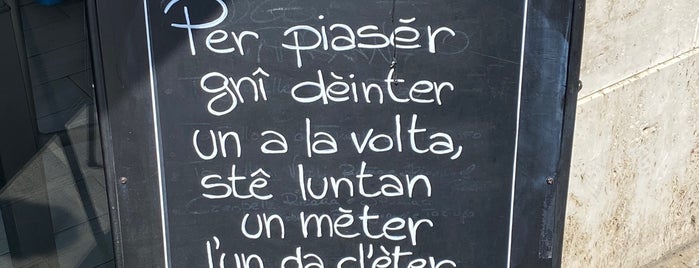 Per piasér
gnî dèinter
un a la volta,
stê luntan
un mèter
l'un da cl'èter